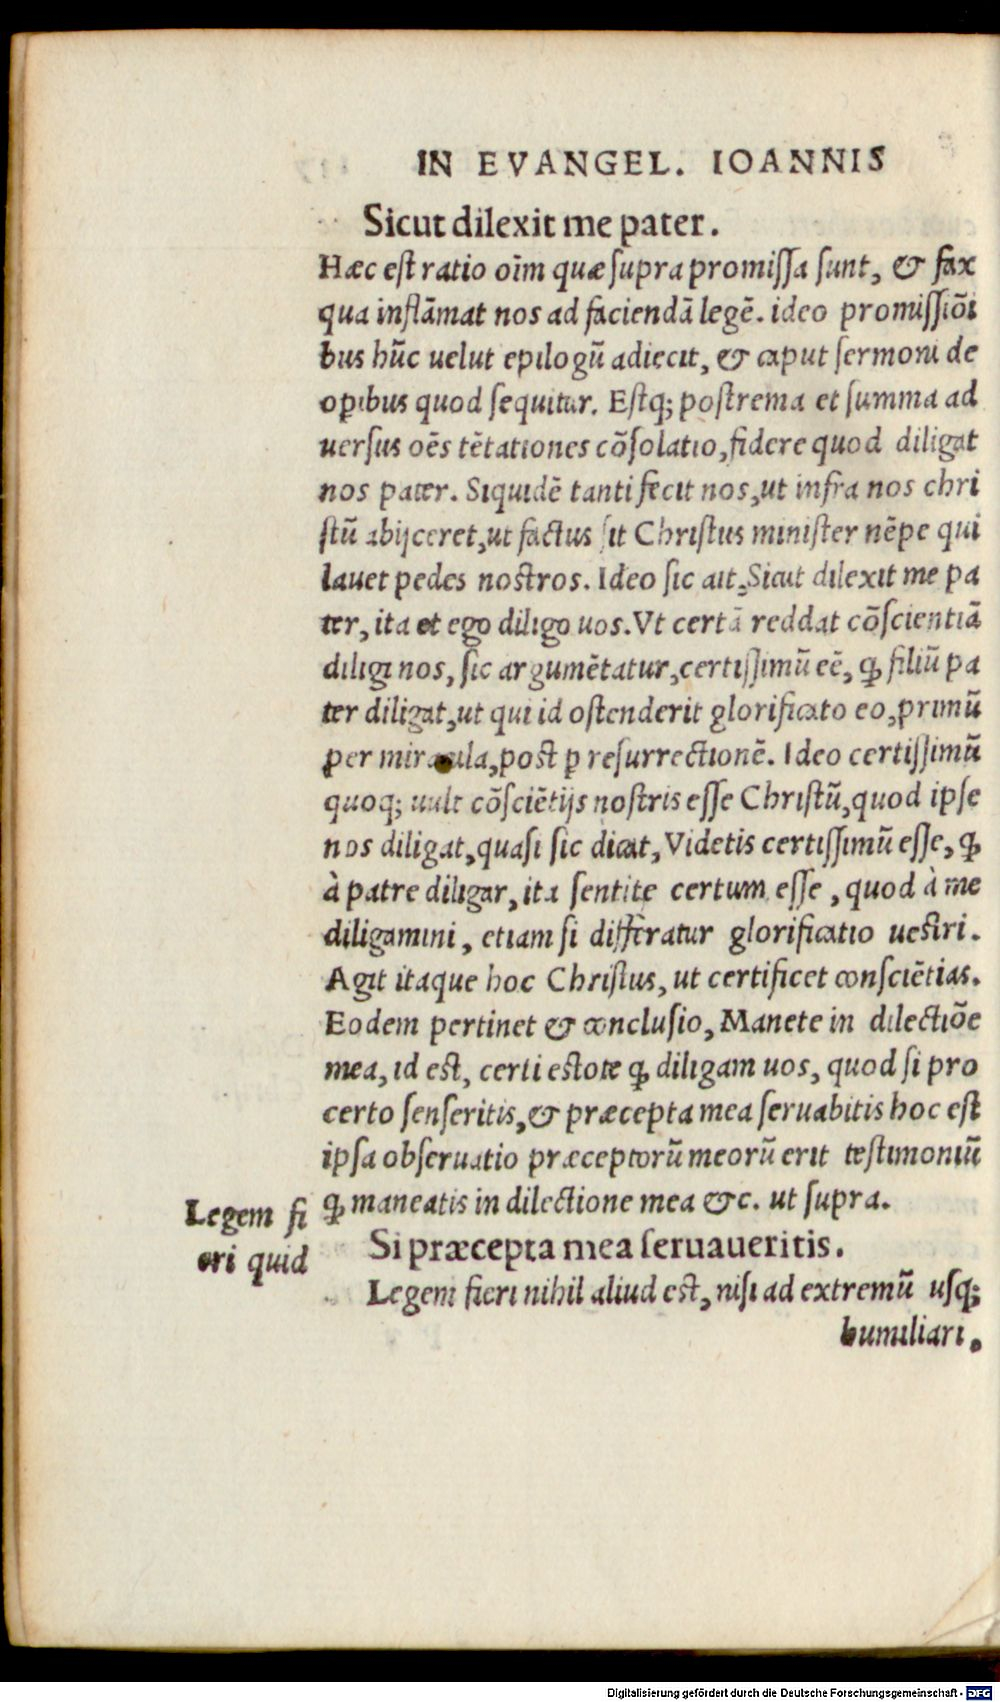 IN EVANGEL. IOANNIS
Sicut dilexit me pater.
Hæc est ratio oīm quæ supra promissa sunt, & fax
qua inflāmat nos ad faciendā legē. ideo promissiōi
bus hūc uelut epilogū adiecit, & caput sermoni de
operibus quod sequitur. Estq; postrema et summa ad
uersus oēs tētationes cōsolatio, fidere quod diligat
nos pater. Siquidē tanti fecit nos, ut infra nos chri
stū abijceret, ut factus sit Christus minister nēpe qui
lauet pedes nostros. Ideo sic ait, Sicut dilexit me pa
ter, ita et ego diligo uos. Vt certā reddat cōscientiā
diligi nos, sic argumētatur, certissimū eē, ꝙ filiū pa
ter diligat, ut qui id ostenderit glorificato eo, primū
per miracula, post ꝑ resurrectionē. Ideo certissimū
quoq; uult cōsciētijs nostris esse Christū, quod ipse
nos diligat, quasi sic dicat, Videtis certissimū esse, ꝙ
à patre diligar, ita sentite certum esse, quod à me
diligamini, etiam si differatur glorificatio uestri.
Agit itaque hoc Christus, ut certificet consciētias.
Eodem pertinet & conclusio, Manete in dilectiōe
mea, id est, certi estote ꝙ diligam uos, quod si pro
certo senseritis, & præcepta mea seruabitis hoc est
ipsa obseruatio præceptorū meorū erit testimoniū
ꝙ maneatis in dilectione mea &c. ut supra.
Legem fi
eri quid
Si præcepta mea seruaueritis.
Legem fieri nihil aliud est, nisi ad extremū usq;
humiliari.
Digitalisierung gefördert durch die Deutsche Forschungsgemeinschaft - DFG